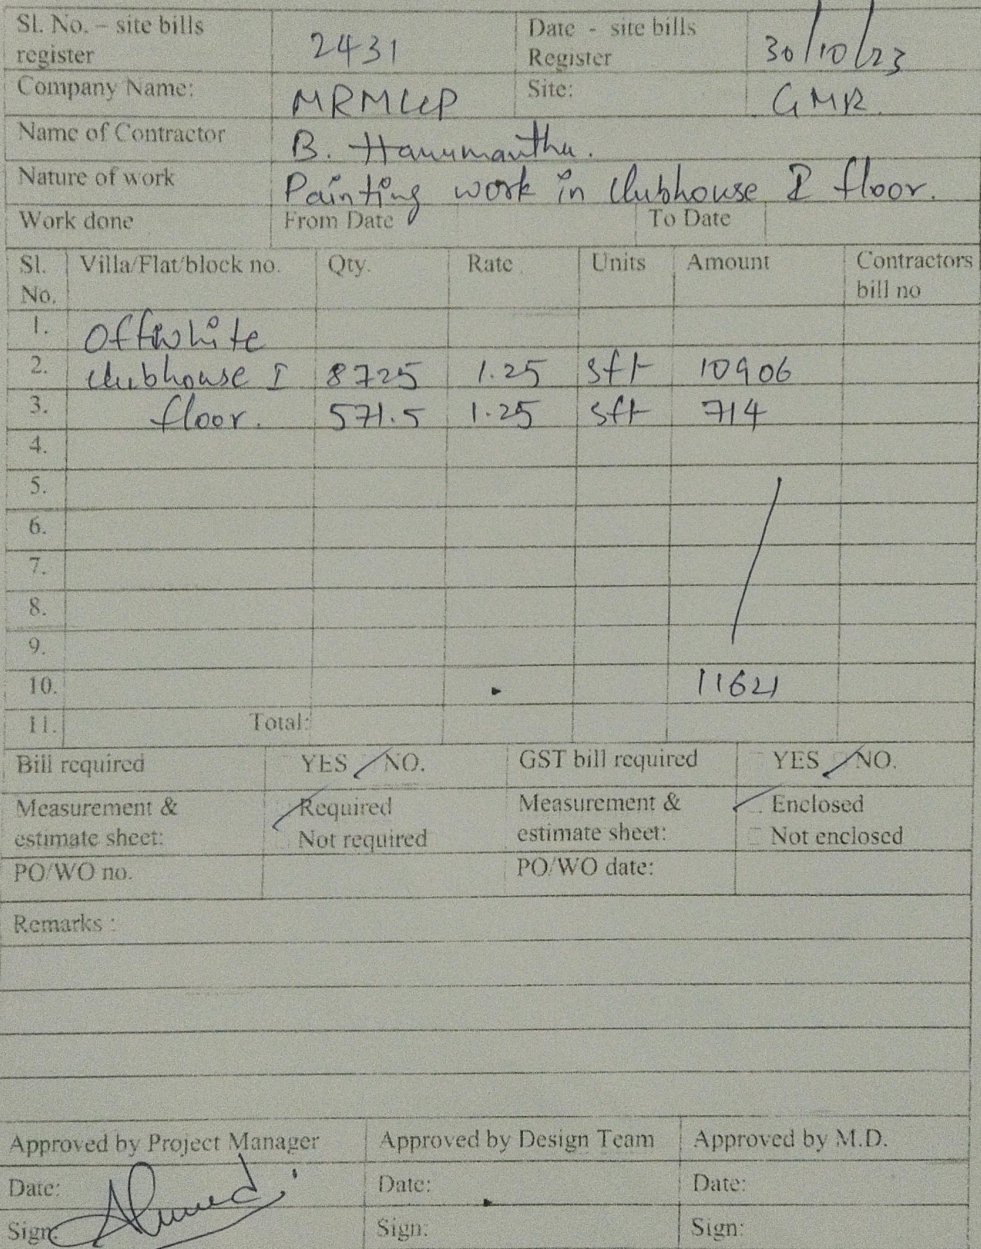 Sl. No. – site bills register 2431 Date - site bills Register 30/10/23
Company Name: MRMLLP Site: GMR
Name of Contractor B. Hanumanthu.
Nature of work Painting work in clubhouse I floor.
Work done From Date To Date
Sl. No. Villa/Flat/block no. Qty. Rate Units Amount Contractors bill no
1. Offwhite
2. clubhouse I 8725 1.25 sft 10906
3. floor. 571.5 1.25 sft 714
4.
5.
6.
7.
8.
9.
10. 11621
11. Total:
Bill required YES NO. GST bill required YES NO.
Measurement & estimate sheet: Required Not required Measurement & estimate sheet: Enclosed Not enclosed
PO/WO no. PO/WO date:
Remarks :
Approved by Project Manager Approved by Design Team Approved by M.D.
Date: Date: Date:
Sign: Ahmed Sign: Sign: